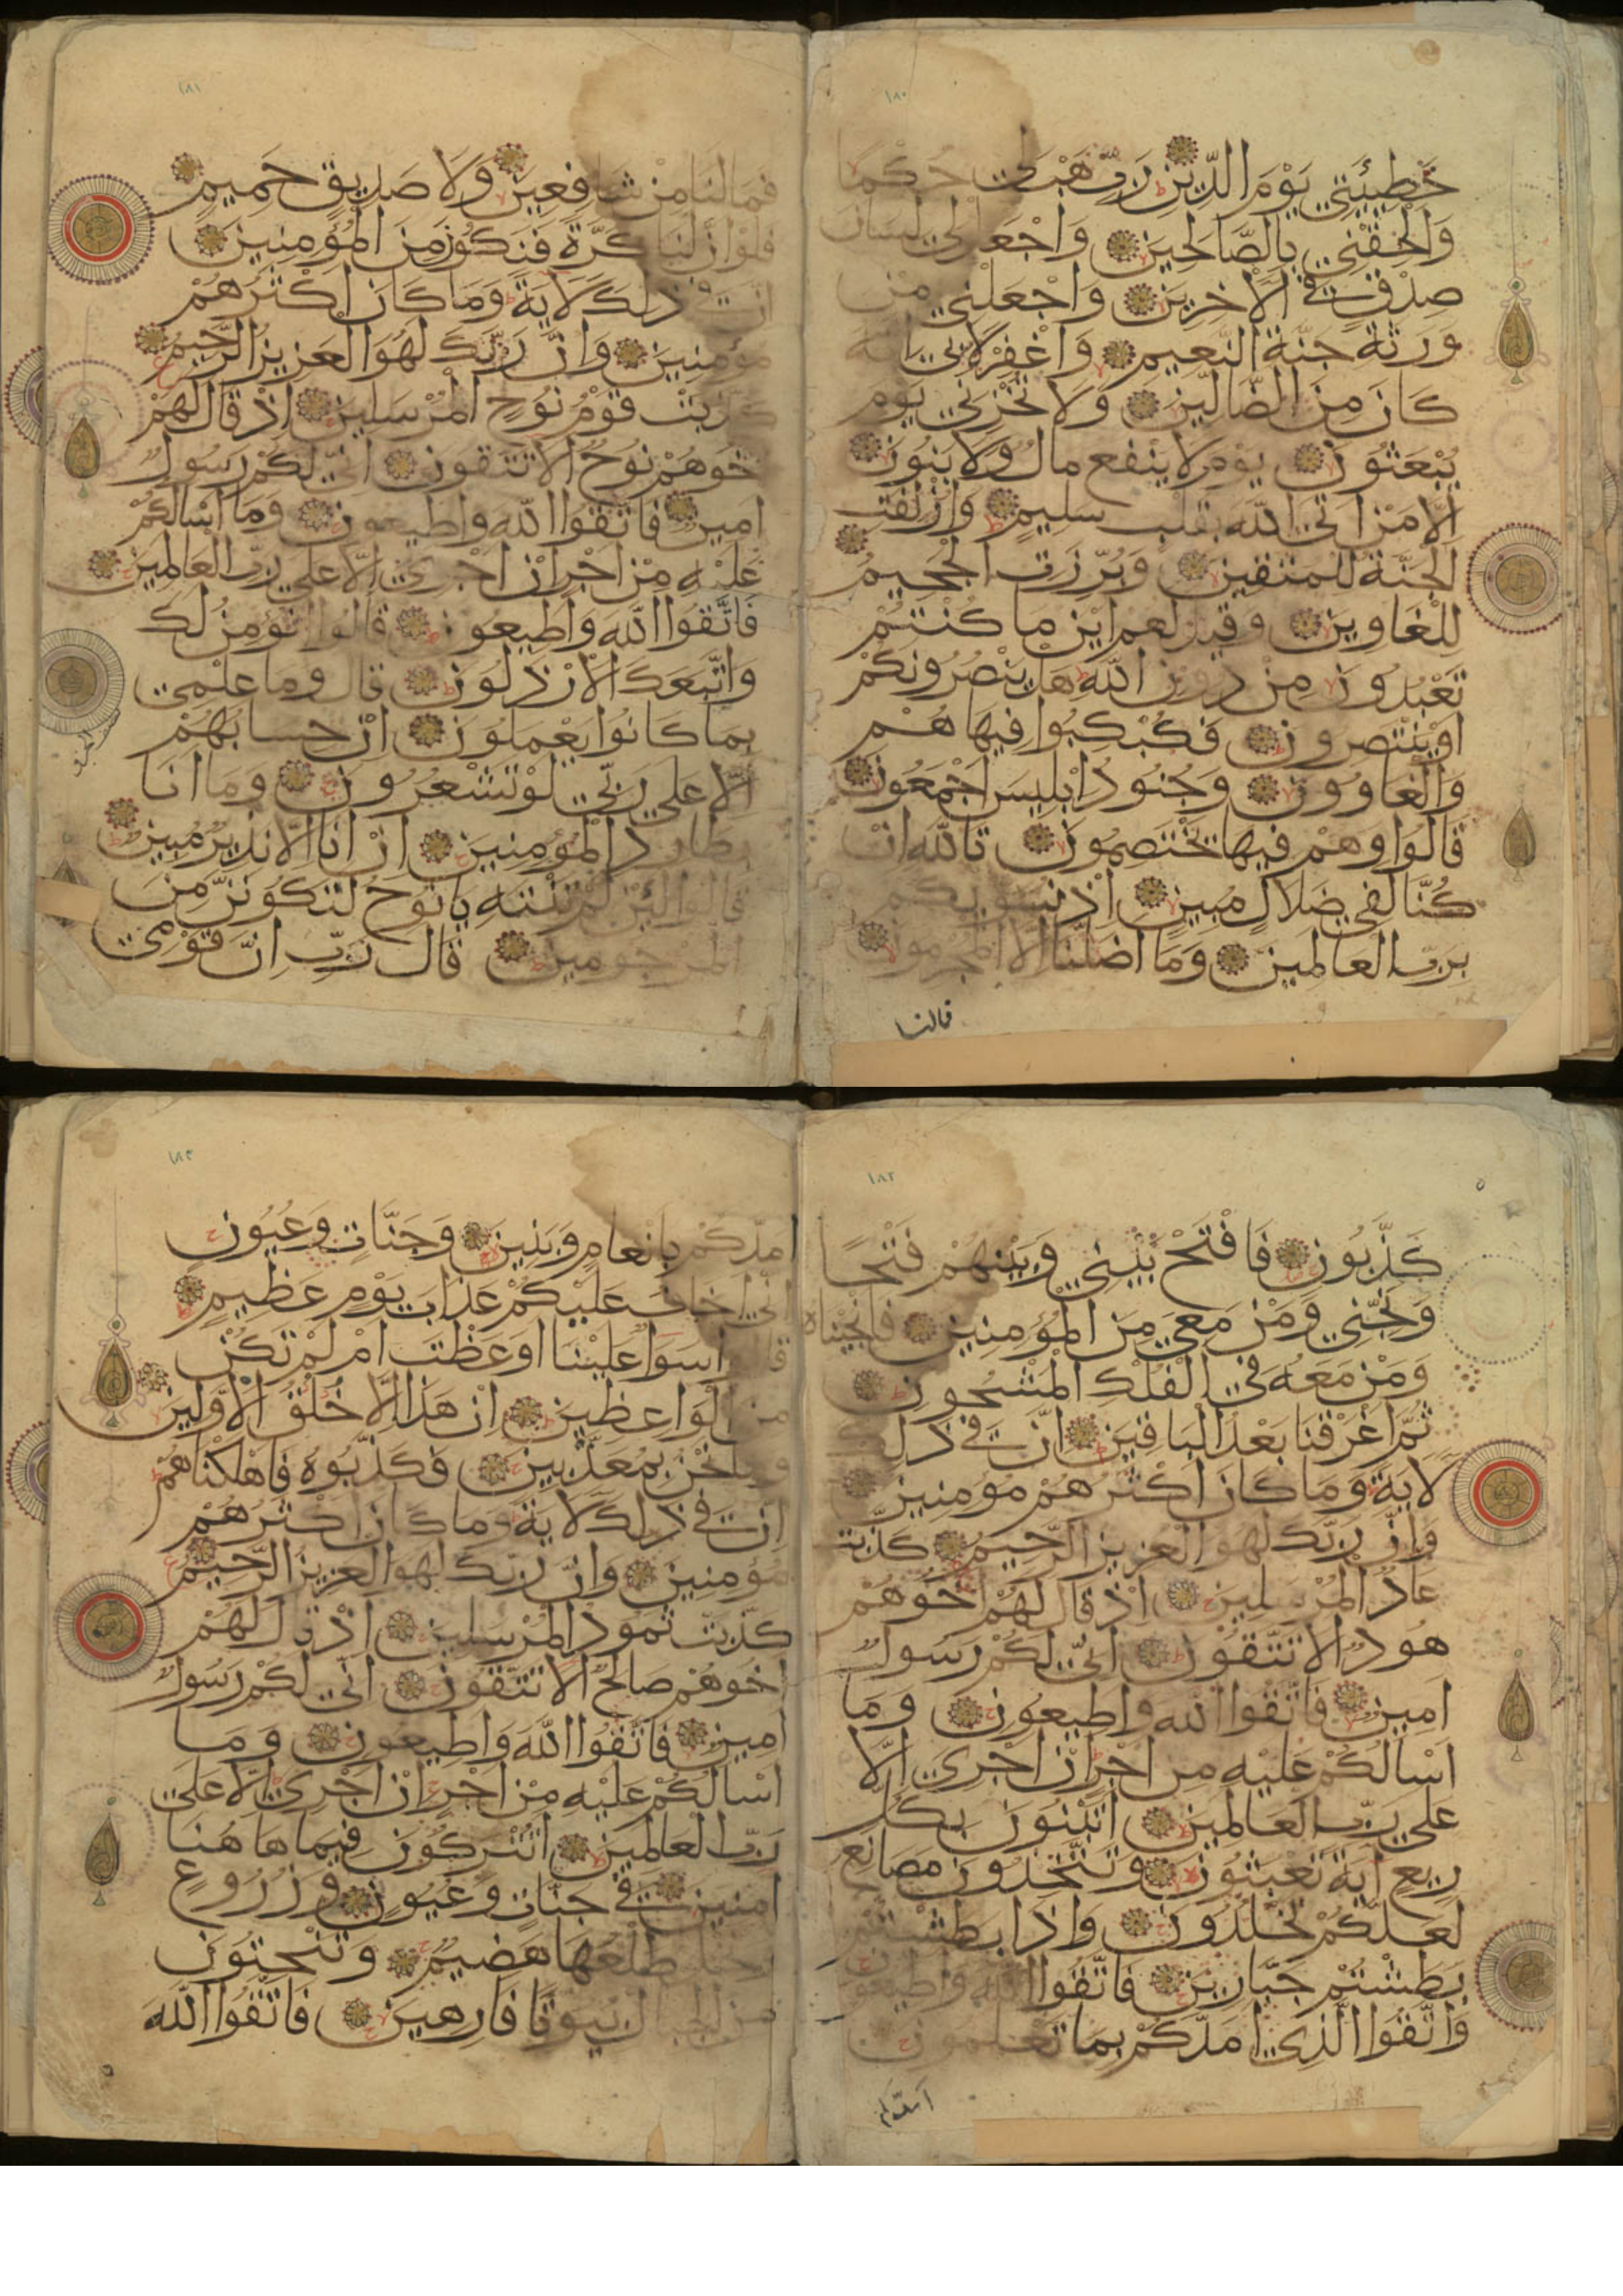 ١٨٠
خَطِيئَتِي يَوْمَ الدِّينِ رَبِّ هَبْ لِي حُكْمًا
وَأَلْحِقْنِي بِالصَّالِحِينَ وَاجْعَل لِي لِسَانَ
صِدْقٍ فِي الْآخِرِينَ وَاجْعَلْنِي مِنْ
وَرَثَةِ جَنَّةِ النَّعِيمِ وَاغْفِرْ لِأَبِي إِنَّهُ
كَانَ مِنَ الضَّالِّينَ وَلَا تُخْزِنِي يَوْمَ
يُبْعَثُونَ يَوْمَ لَا يَنْفَعُ مَالٌ وَلَا بَنُونَ
إِلَّا مَنْ أَتَى اللَّهَ بِقَلْبٍ سَلِيمٍ وَأُزْلِفَتِ
الْجَنَّةُ لِلْمُتَّقِينَ وَبُرِّزَتِ الْجَحِيمُ
لِلْغَاوِينَ وَقِيلَ لَهُمْ أَيْنَ مَا كُنْتُمْ
تَعْبُدُونَ مِنْ دُونِ اللَّهِ هَلْ يَنْصُرُونَكُمْ
أَوْ يَنْتَصِرُونَ فَكُبْكِبُوا فِيهَا هُمْ
وَالْغَاوُونَ وَجُنُودُ إِبْلِيسَ أَجْمَعُونَ
قَالُوا وَهُمْ فِيهَا يَخْتَصِمُونَ تَاللَّهِ إِنْ
كُنَّا لَفِي ضَلَالٍ مُبِينٍ إِذْ نُسَوِّيكُمْ
بِرَبِّ الْعَالَمِينَ وَمَا أَضَلَّنَا إِلَّا الْمُجْرِمُونَ
فمالنا
١٨١
فَمَا لَنَا مِنْ شَافِعِينَ وَلَا صَدِيقٍ حَمِيمٍ
فَلَوْ أَنَّ لَنَا كَرَّةً فَنَكُونَ مِنَ الْمُؤْمِنِينَ
إِنَّ فِي ذَلِكَ لَآيَةً وَمَا كَانَ أَكْثَرُهُمْ
مُؤْمِنِينَ وَإِنَّ رَبَّكَ لَهُوَ الْعَزِيزُ الرَّحِيمُ
كَذَّبَتْ قَوْمُ نُوحٍ الْمُرْسَلِينَ إِذْ قَالَ لَهُمْ
أَخُوهُمْ نُوحٌ أَلَا تَتَّقُونَ إِنِّي لَكُمْ رَسُولٌ
أَمِينٌ فَاتَّقُوا اللَّهَ وَأَطِيعُونِ وَمَا أَسْأَلُكُمْ
عَلَيْهِ مِنْ أَجْرٍ إِنْ أَجْرِيَ إِلَّا عَلَى رَبِّ الْعَالَمِينَ
فَاتَّقُوا اللَّهَ وَأَطِيعُونِ قَالُوا أَنُؤْمِنُ لَكَ
وَاتَّبَعَكَ الْأَرْذَلُونَ قَالَ وَمَا عِلْمِي
بِمَا كَانُوا يَعْمَلُونَ إِنْ حِسَابُهُمْ
إِلَّا عَلَى رَبِّي لَوْ تَشْعُرُونَ وَمَا أَنَا
بِطَارِدِ الْمُؤْمِنِينَ إِنْ أَنَا إِلَّا نَذِيرٌ مُبِينٌ
قَالُوا لَئِنْ لَمْ تَنْتَهِ يَا نُوحُ لَتَكُونَنَّ مِنَ
الْمَرْجُومِينَ قَالَ رَبِّ إِنَّ قَوْمِي
١٨٢
كَذَّبُونِ فَافْتَحْ بَيْنِي وَبَيْنَهُمْ فَتْحًا
وَنَجِّنِي وَمَنْ مَعِيَ مِنَ الْمُؤْمِنِينَ فَأَنْجَيْنَاهُ
وَمَنْ مَعَهُ فِي الْفُلْكِ الْمَشْحُونِ
ثُمَّ أَغْرَقْنَا بَعْدُ الْبَاقِينَ إِنَّ فِي ذَلِكَ
لَآيَةً وَمَا كَانَ أَكْثَرُهُمْ مُؤْمِنِينَ
وَإِنَّ رَبَّكَ لَهُوَ الْعَزِيزُ الرَّحِيمُ كَذَّبَتْ
عَادٌ الْمُرْسَلِينَ إِذْ قَالَ لَهُمْ أَخُوهُمْ
هُودٌ أَلَا تَتَّقُونَ إِنِّي لَكُمْ رَسُولٌ
أَمِينٌ فَاتَّقُوا اللَّهَ وَأَطِيعُونِ وَمَا
أَسْأَلُكُمْ عَلَيْهِ مِنْ أَجْرٍ إِنْ أَجْرِيَ إِلَّا
عَلَى رَبِّ الْعَالَمِينَ أَتَبْنُونَ بِكُلِّ
رِيعٍ آيَةً تَعْبَثُونَ وَتَتَّخِذُونَ مَصَانِعَ
لَعَلَّكُمْ تَخْلُدُونَ وَإِذَا بَطَشْتُمْ
بَطَشْتُمْ جَبَّارِينَ فَاتَّقُوا اللَّهَ وَأَطِيعُونِ
وَاتَّقُوا الَّذِي أَمَدَّكُمْ بِمَا تَعْلَمُونَ
امدكم
١٨٣
أَمَدَّكُمْ بِأَنْعَامٍ وَبَنِينَ وَجَنَّاتٍ وَعُيُونٍ
إِنِّي أَخَافُ عَلَيْكُمْ عَذَابَ يَوْمٍ عَظِيمٍ
قَالُوا سَوَاءٌ عَلَيْنَا أَوَعَظْتَ أَمْ لَمْ تَكُنْ
مِنَ الْوَاعِظِينَ إِنْ هَذَا إِلَّا خُلُقُ الْأَوَّلِينَ
وَمَا نَحْنُ بِمُعَذَّبِينَ فَكَذَّبُوهُ فَأَهْلَكْنَاهُمْ
إِنَّ فِي ذَلِكَ لَآيَةً وَمَا كَانَ أَكْثَرُهُمْ
مُؤْمِنِينَ وَإِنَّ رَبَّكَ لَهُوَ الْعَزِيزُ الرَّحِيمُ
كَذَّبَتْ ثَمُودُ الْمُرْسَلِينَ إِذْ قَالَ لَهُمْ
أَخُوهُمْ صَالِحٌ أَلَا تَتَّقُونَ إِنِّي لَكُمْ رَسُولٌ
أَمِينٌ فَاتَّقُوا اللَّهَ وَأَطِيعُونِ وَمَا
أَسْأَلُكُمْ عَلَيْهِ مِنْ أَجْرٍ إِنْ أَجْرِيَ إِلَّا عَلَى
رَبِّ الْعَالَمِينَ أَتُتْرَكُونَ فِيمَا هَاهُنَا
آمِنِينَ فِي جَنَّاتٍ وَعُيُونٍ وَزُرُوعٍ
وَنَخْلٍ طَلْعُهَا هَضِيمٌ وَتَنْحِتُونَ
مِنَ الْجِبَالِ بُيُوتًا فَارِهِينَ فَاتَّقُوا اللَّهَ